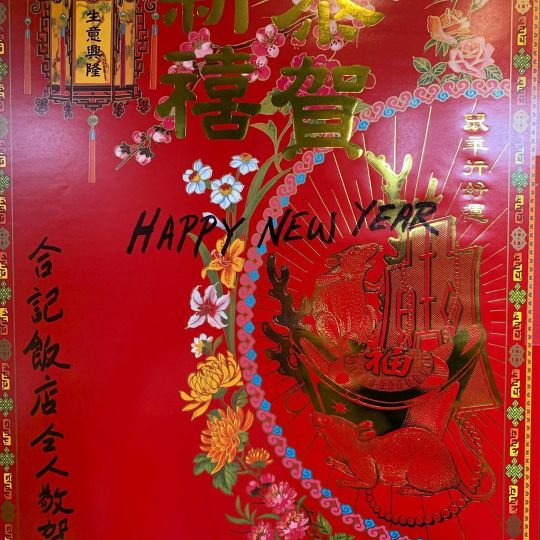 恭賀
新禧
生意興隆
鼠年行好運
HAPPY NEW YEAR
福
合記飯店仝人敬賀